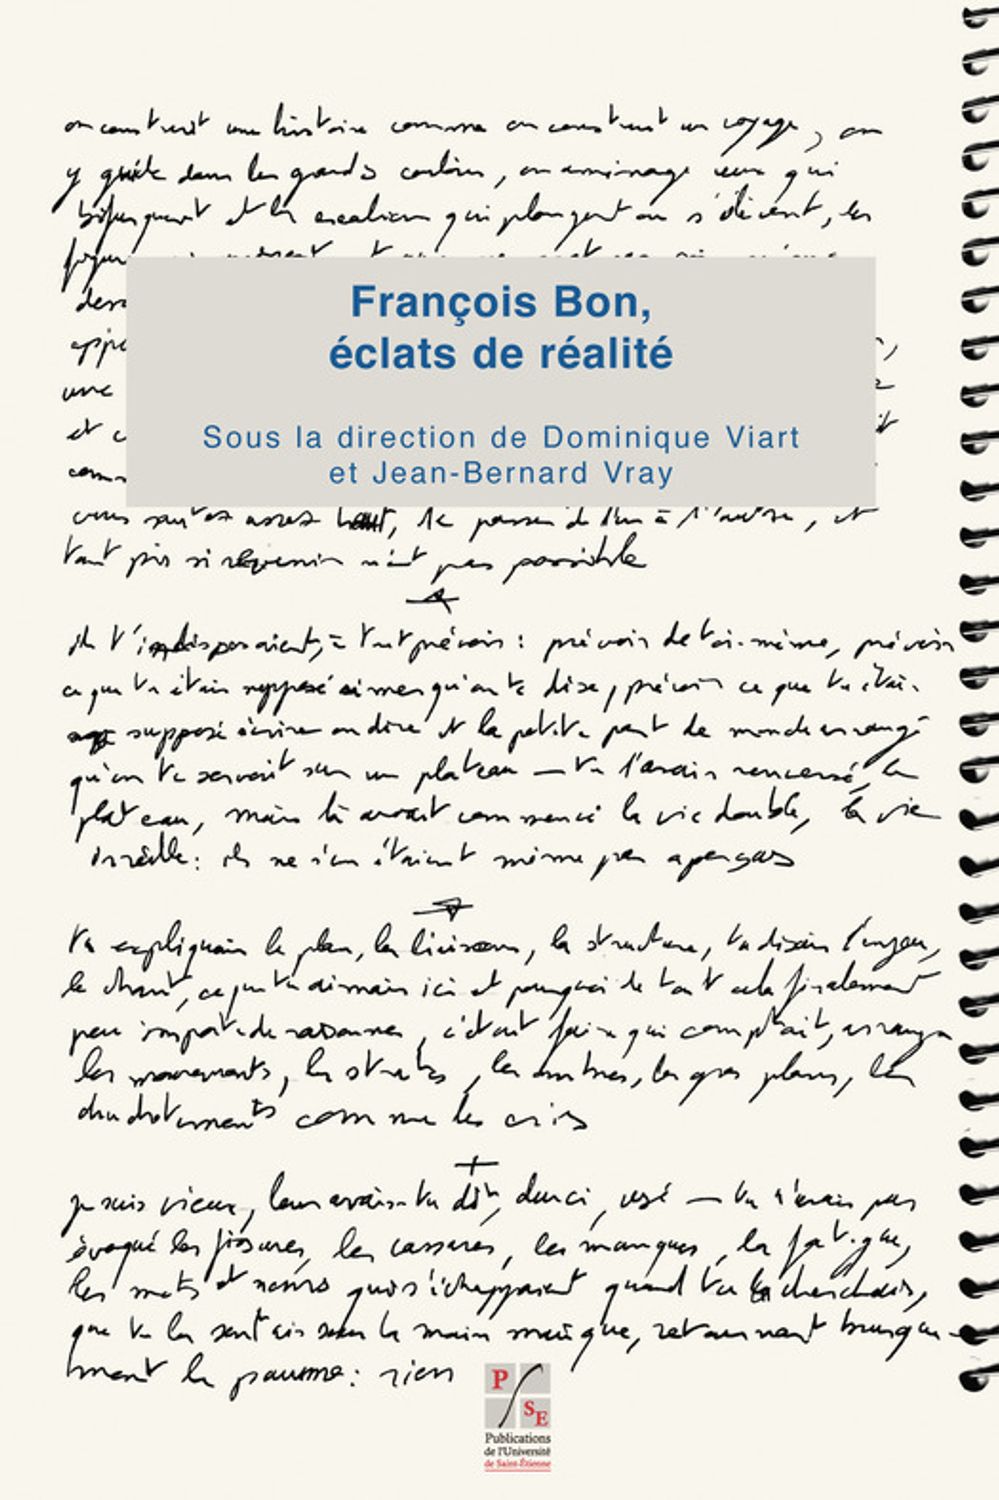 on construit une histoire comme on construit un voyage, on
y guide dans les grands couloirs, on aménage ceux qui
bifurquent et les escaliers qui plongent ou s'élèvent, les
François Bon,
éclats de réalité
une
et
Sous la direction de Dominique Viart
et Jean-Bernard Vray
assez haut, passer de l'un à l'autre, et
tant pis si revenir n'est pas possible
ils t'indisposaient, à tout prévoir : prévoir de toi-même, prévoir
ce que tu étais supposé aimer qu'on te dise, prévoir ce que tu étais
supposé écrire ou dire et la petite part de monde arrangé
qu'on te servait sur un plateau — tu l'avais renversé, le
plateau, mais là avait commencé la vie double, la vie
: ils ne s'en étaient même pas aperçus
tu expliquais le plan, les liaisons, la structure, tu disais l'enjeu,
le chant, ce que tu aimais ici et pourquoi de tout cela finalement
peu importe de raisonner, c'était faire qui comptait, arranger
les mouvements, les strates, les ombres, les gros plans, les
chuchotements comme les cris
je suis vieux, leur avais-tu dit, durci, usé — tu n'avais pas
évoqué les fissures, les cassures, les manques, la fatigue,
les mots et noms qui s'échappaient quand tu les cherchais,
que tu les sentais sous la main presque, retournant brusque-
ment la paume : rien
P
SE
Publications
de l'Université
de Saint-Étienne